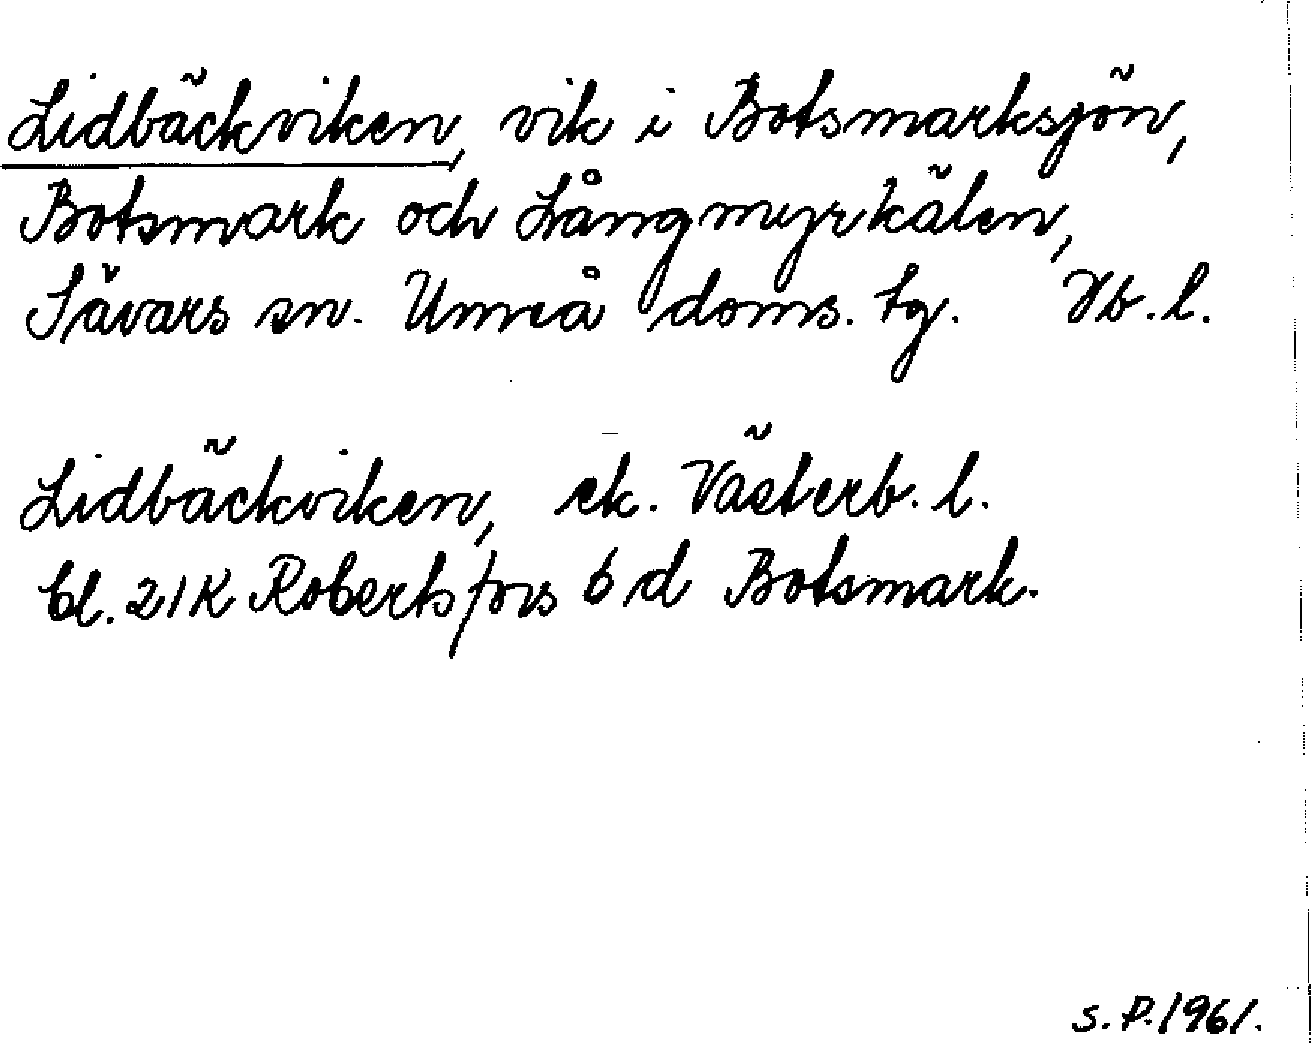 Lidbäckviken, vik i Botsmarksjön,
Botsmark och Långmyrkälen,
Sävars sn. Umeå doms. tg. Vb. l.
Lidbäckviken, ek. Västerb. l.
bl. 21K Robertsfors 6 d Botsmark.
S.P. 1961.